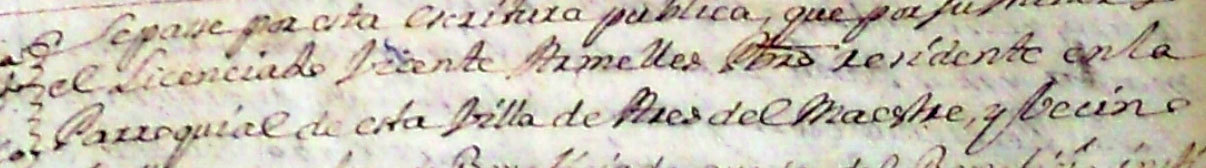 Sepase por esta escritura publica, que por su thenor
el Licenciado Vicente Armelles Pbro residente en la
Parroquial de esta Villa de Ares del Maestre, y Vecino